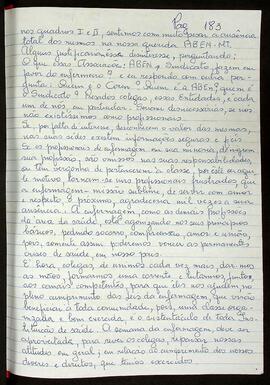 Pag 183
nos quadros I e II, sentimos com muito pesar a ausência
total dos mesmos na nossa querida ABEn-Mt.
Alguns justificam esse desinteresse, perguntando:
O que essas Associações: ABEN, e Sindicato fazem em
favor do enfermeiro? e eu respondo com outra per-
gunta: Quem é o Coren? Quem é a ABEn? quem é
o Sindicato? Prezados colegas, essas Entidades, é cada
um de nós, em particular. Somos desnecessários, se nós
não existíssemos como profissionais.
Se, por falta de interesse, desconhecem o valor das mesmas,
nas suas sedes existem informações seguras e fiéis.
Se os profissionais de enfermagem em sua minoria, denigrem
sua profissão, são omissos nas suas responsabilidades,
ou tem vergonha de pertencerem à classe, por este ou aque-
le motivo, tornam-se uns profissionais frustrados que
a enfermagem - missão sublime, de servir com amor
e respeito o próximo, agradeceria mil vezes a sua
ausência. A enfermagem, como as demais profissões
na área da saúde, está agonizando nos seus princípios
básicos, pedindo socorro, conferências, amor e união
pois, somente assim poderemos vencer as permanentes
crises de saúde, em nosso país.
É hora, colegas, de unirmos cada vez mais, dar-mos
as mãos, formarmos uma corrente e lutarmos juntos
aos canais competentes, para que eles nos ajudem no
pleno cumprimento das leis da enfermagem, que virão
beneficiar a toda comunidade, pois, uma classe orga-
nizada e bem exercida, é o sustentáculo de toda Ins-
tituição de saúde. A semana da enfermagem, deve ser
aproveitada, para rever os colegas, repensar nossas
atitudes em geral, em relação ao cumprimento dos nossos
deveres e direitos, que temos exercidos